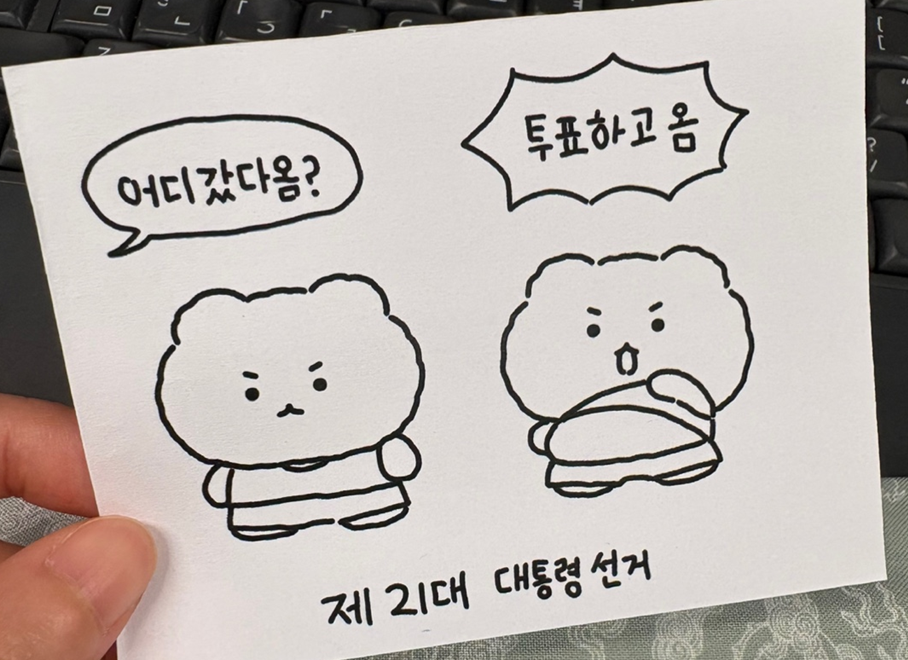 어디갔다옴?
투표하고 옴
제 21대 대통령 선거